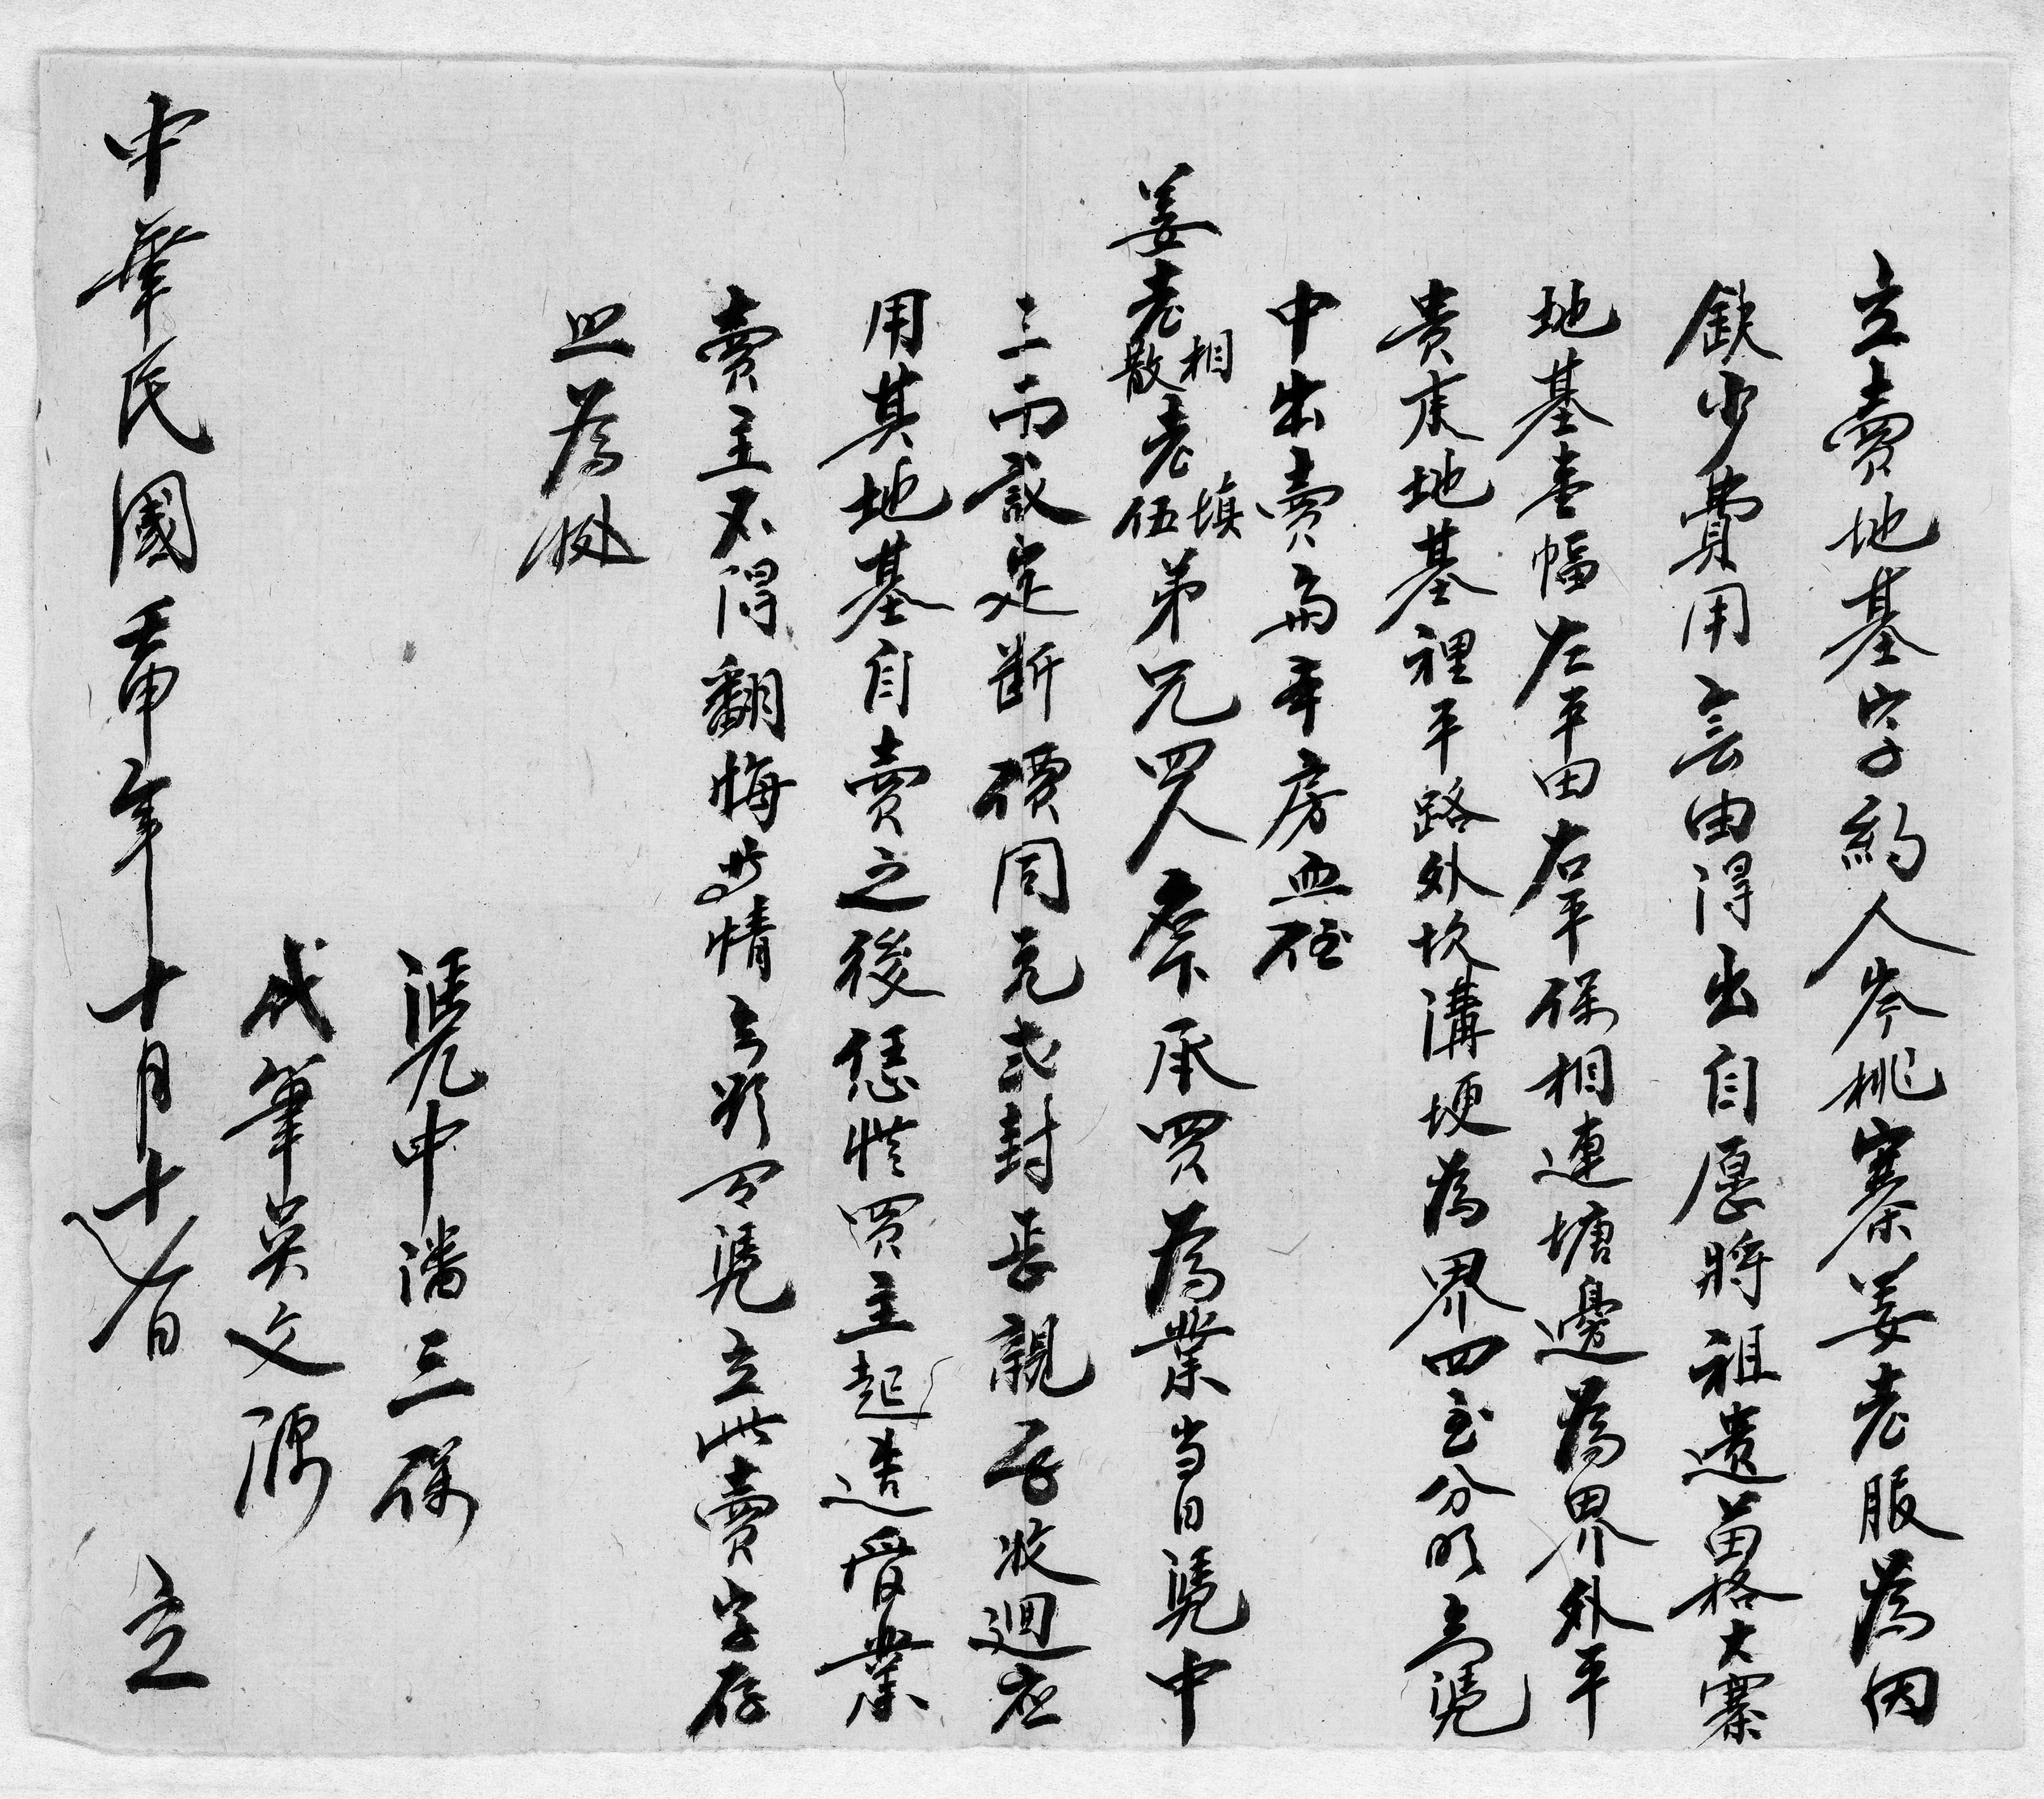 立賣地基字約人岑桃寨姜老服為因
缺少費用無由得出自愿將祖遺苗格大寨
地基壹幅左平田右平保相連塘邊為界外平
貴床地基裡平路外坎溝埂為界四至分明立憑
中出賣与本房血侄
姜老相散老填伍弟兄四人名下承買為業当日憑中
三面議定断價同元弍封丢親手收迴应
用其地基自賣之後恁從買主起造管業
賣主不得翻悔异情立欲有憑立此賣字存
照為據
憑中潘三保
代筆吳文源
中華民國壬申年十月十八日 立